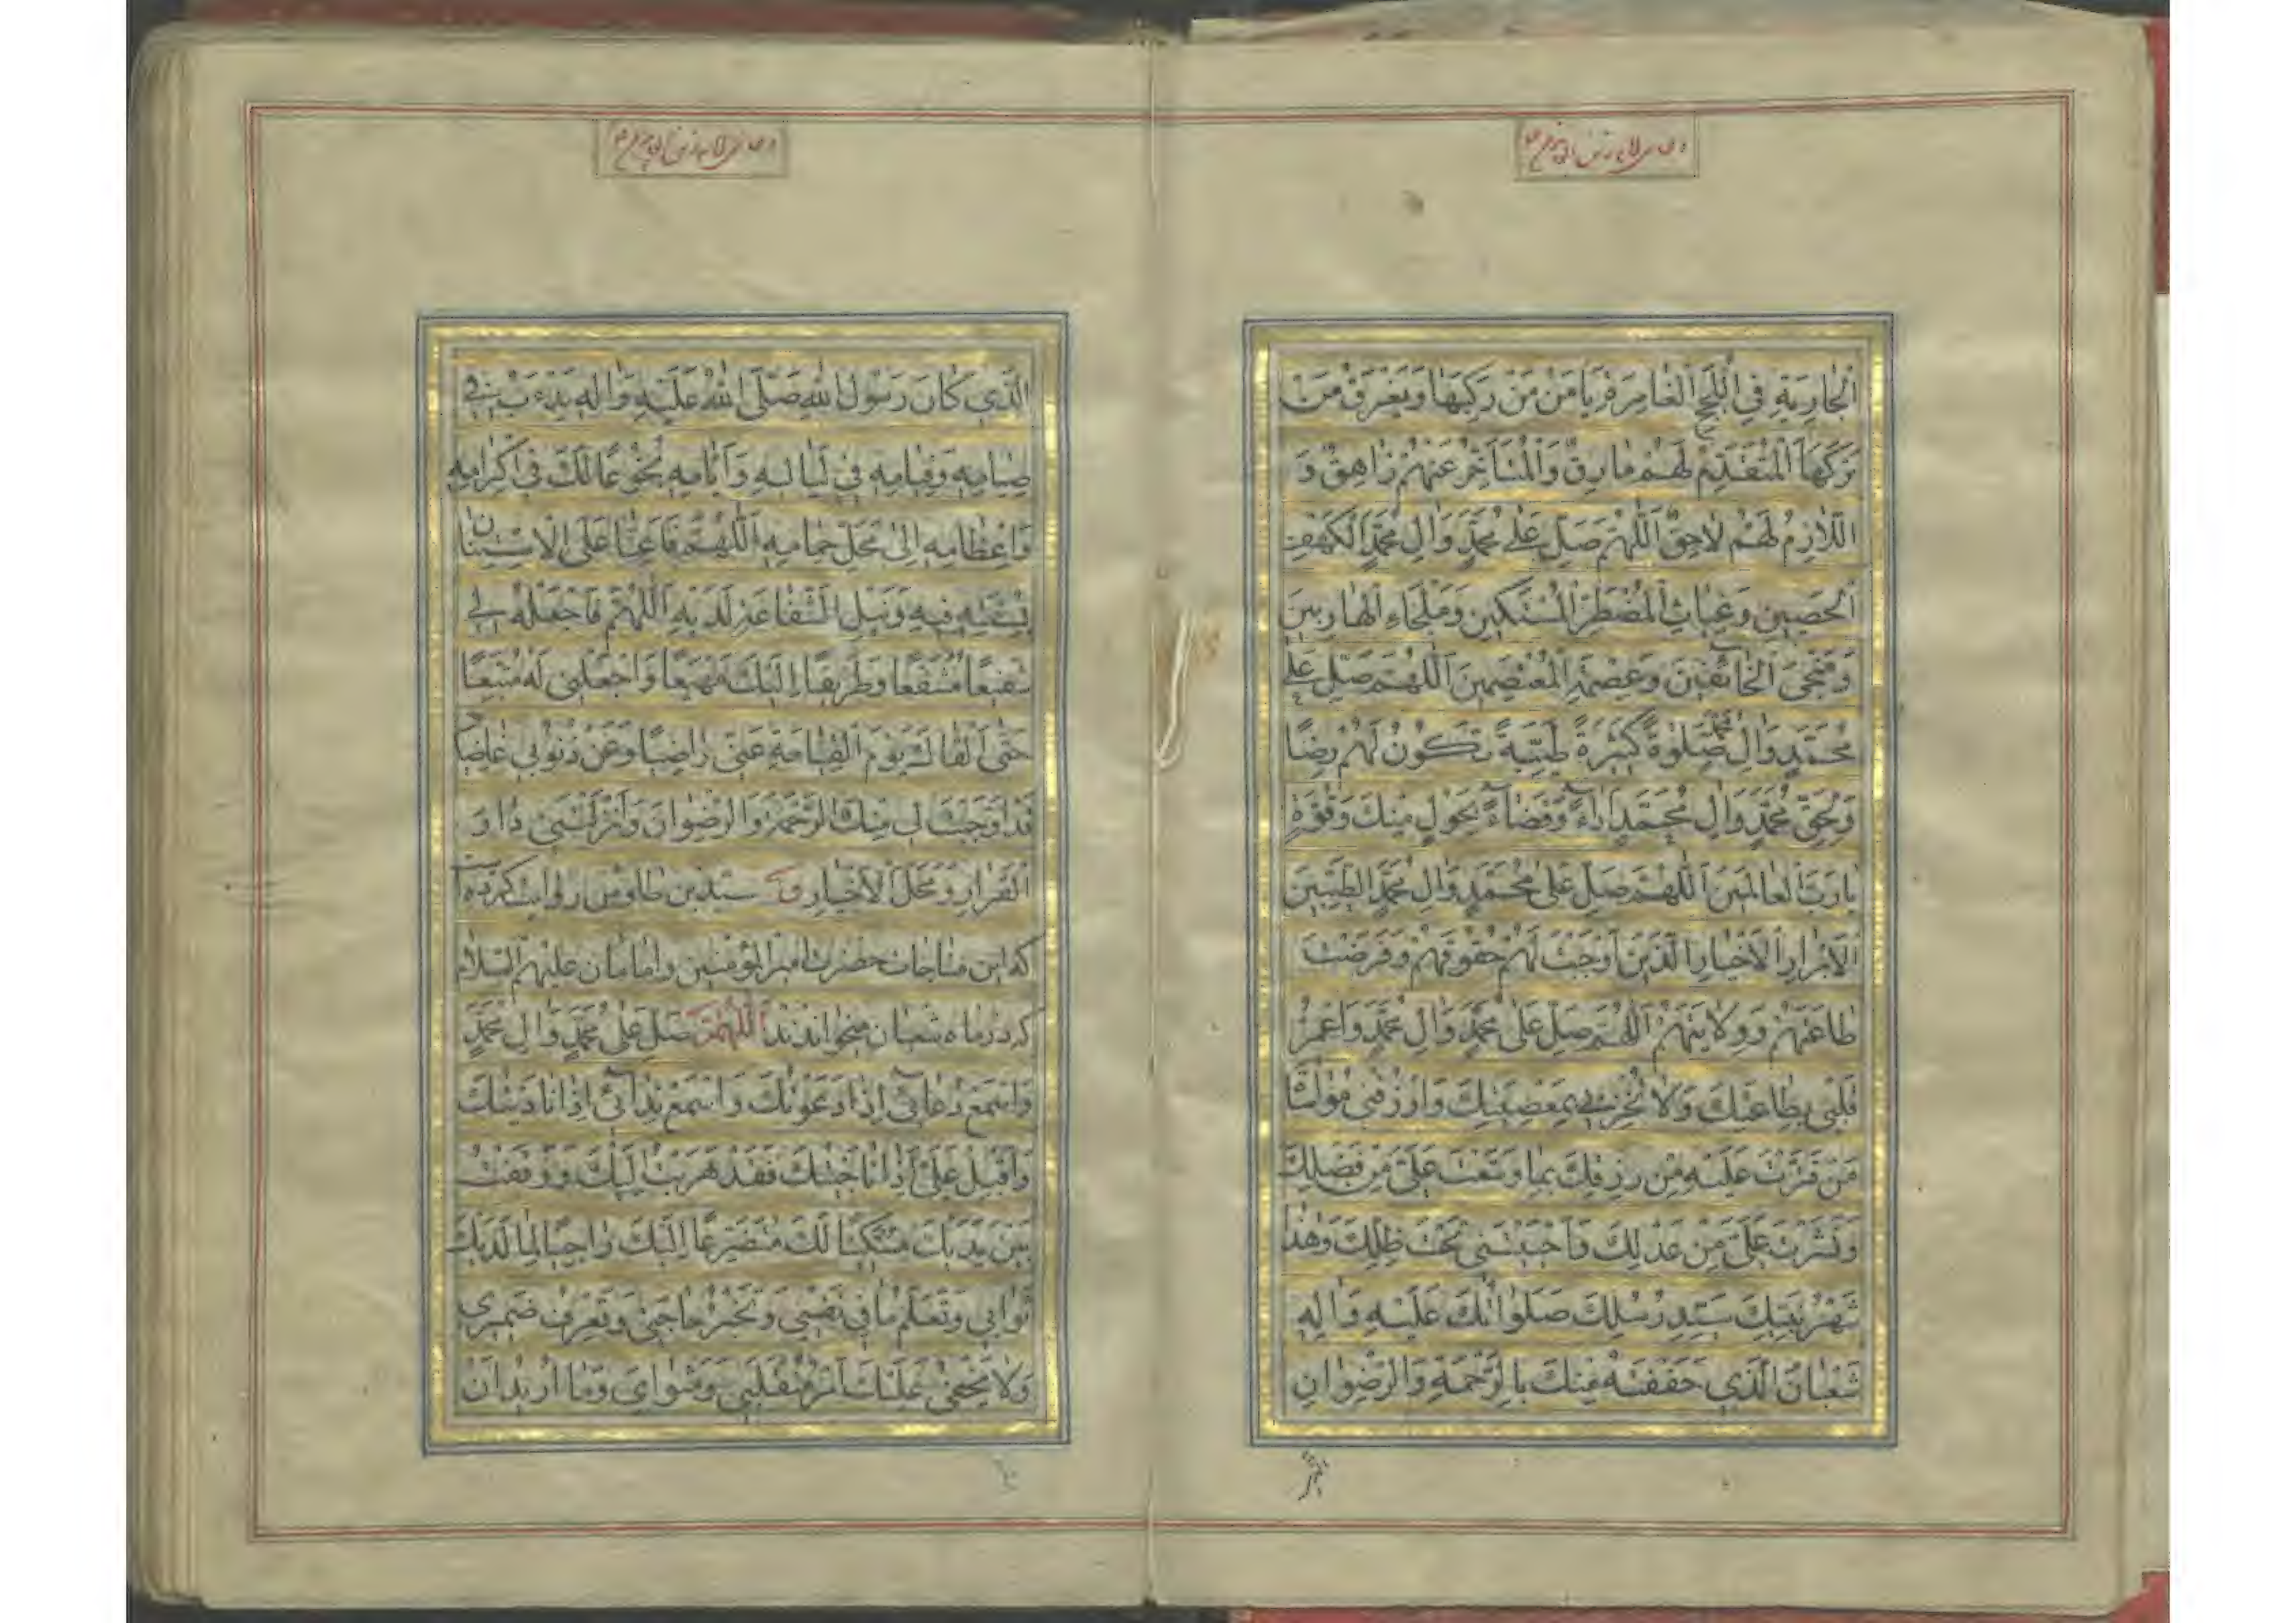 الْجارِيَةِ فِي اللُّجَجِ الْغامِرَةِ يَأْمَنُ مَنْ رَكِبَها وَيَغْرَقُ مَنْ
تَرَكَهَا الْمُتَقَدِّمُ لَهُمْ مارِقٌ وَالْمُتَاَخِّرُ عَنْهُمْ زاهِقٌ وَ
اللّازِمُ لَهُمْ لاحِقٌ اَللّٰهُمَّ صَلِّ عَلى مُحَمَّدٍ وَالِ مُحَمَّدٍ الْكَهْفِ
الْحَصينِ وَغِياثِ الْمُضْطَرِّ الْمُسْتَكينِ وَمَلْجَاءِ الْهارِبينَ
وَمَنْجَى الْخائِفينَ وَعِصْمَةِ الْمُعْتَصِمينَ اَللّٰهُمَّ صَلِّ عَلى
مُحَمَّدٍ وَالِ مُحَمَّدٍ صَلوٰةً كَثيرَةً طَيِّبَةً تَكُونُ لَهُمْ رِضًا
وَلِحَقِّ مُحَمَّدٍ وَالِ مُحَمَّدٍ اَداءً وَقَضاءً بِحَوْلٍ مِنْكَ وَقُوَّةٍ
يا رَبَّ الْعالَمينَ اَللّٰهُمَّ صَلِّ عَلى مُحَمَّدٍ وَالِ مُحَمَّدٍ الطَّيِّبينَ
الْاَبْرارِ الْاَخْيارِ الَّذينَ اَوْجَبْتَ لَهُمْ حُقُوقَهُمْ وَفَرَضْتَ
طاعَتَهُمْ وَوِلايَتَهُمْ اَللّٰهُمَّ صَلِّ عَلى مُحَمَّدٍ وَالِ مُحَمَّدٍ وَاعْمُرْ
قَلْبي بِطاعَتِكَ وَلا تُخْزِني بِمَعْصِيَتِكَ وَارْزُقْني مُواساةَ
مَنْ قَتَّرْتَ عَلَيْهِ مِنْ رِزْقِكَ بِما وَسَّعْتَ عَلَيَّ مِنْ فَضْلِكَ
وَنَشَرْتَ عَلَيَّ مِنْ عَدْلِكَ وَاَحْيَيْتَني تَحْتَ ظِلِّكَ وَهٰذا
شَهْرُ نَبِيِّكَ سَيِّدِ رُسُلِكَ صَلَواتُكَ عَلَيْهِ وَالِهِ
شَعْبانُ الَّذي حَفَفْتَهُ مِنْكَ بِالرَّحْمَةِ وَالرِّضْوانِ
الَّذي
الَّذي كانَ رَسُولُ اللهِ صَلَّى اللهُ عَلَيْهِ وَالِهِ يَدْءَبُ في
صِيامِهِ وَقِيامِهِ في لَياليهِ وَاَيّامِهِ بُخُوعًا لَكَ في اِكْرامِهِ
وَاِعْظامِهِ اِلى مَحَلِّ حِمامِهِ اَللّٰهُمَّ فَاَعِنّا عَلَى الْاِسْتِنانِ
بِسُنَّتِهِ فيهِ وَنَيْلِ الشَّفاعَةِ لَدَيْهِ اَللّٰهُمَّ فَاجْعَلْهُ لي
شَفيعًا مُشَفَّعًا وَطَريقًا اِلَيْكَ مَهْيَعًا وَاجْعَلْني لَهُ مُتَّبِعًا
حَتّى اَلْقاكَ يَوْمَ الْقِيامَةِ عَنّي راضِيًا وَعَنْ ذُنُوبي غاضِيًا
قَدْ اَوْجَبْتَ لي مِنْكَ الرَّحْمَةَ وَالرِّضْوانَ وَاَنْزَلْتَني دارَ
الْقَرارِ وَمَحَلَّ الْاَخْيارِ سيد بن طاوس روايت كرده است
كه اين مناجات حضرت امير المؤمنين وامامان عليهم السلام
كه در ماه شعبان ميخواندند اَللّٰهُمَّ صَلِّ عَلى مُحَمَّدٍ وَالِ مُحَمَّدٍ
وَاسْمَعْ دُعائي اِذا دَعَوْتُكَ وَاسْمَعْ نِدائي اِذا نادَيْتُكَ
وَاَقْبِلْ عَلَيَّ اِذا ناجَيْتُكَ فَقَدْ هَرَبْتُ اِلَيْكَ وَوَقَفْتُ
بَيْنَ يَدَيْكَ مُسْتَكينًا لَكَ مُتَضَرِّعًا اِلَيْكَ راجِيًا لِما لَدَيْكَ
ثَوابي وَتَعْلَمُ ما في نَفْسي وَتَخْبُرُ حاجَتي وَتَعْرِفُ ضَميري
وَلا يَخْفى عَلَيْكَ اَمْرُ مُنْقَلَبي وَمَثْوايَ وَما اُريدُ اَنْ